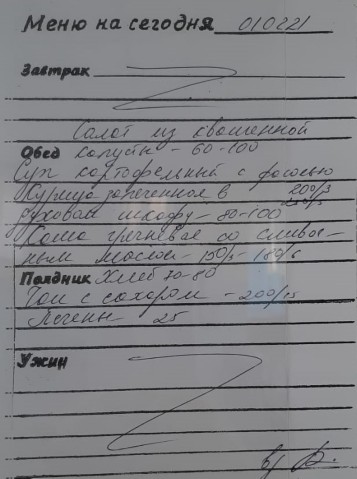 Меню на сегодня 010221
Завтрак
Салат из квашенной
Обед капусты - 60-100
Суп картофельный с фасолью
Курица запеченное в 200/3
духовом шкафу - 80-100
Каша гречневая со сливоч-
ным маслом - 150/5 - 180/6
Полдник Хлеб 70-80
Чай с сахаром - 200/15
Печенье 25
Ужин